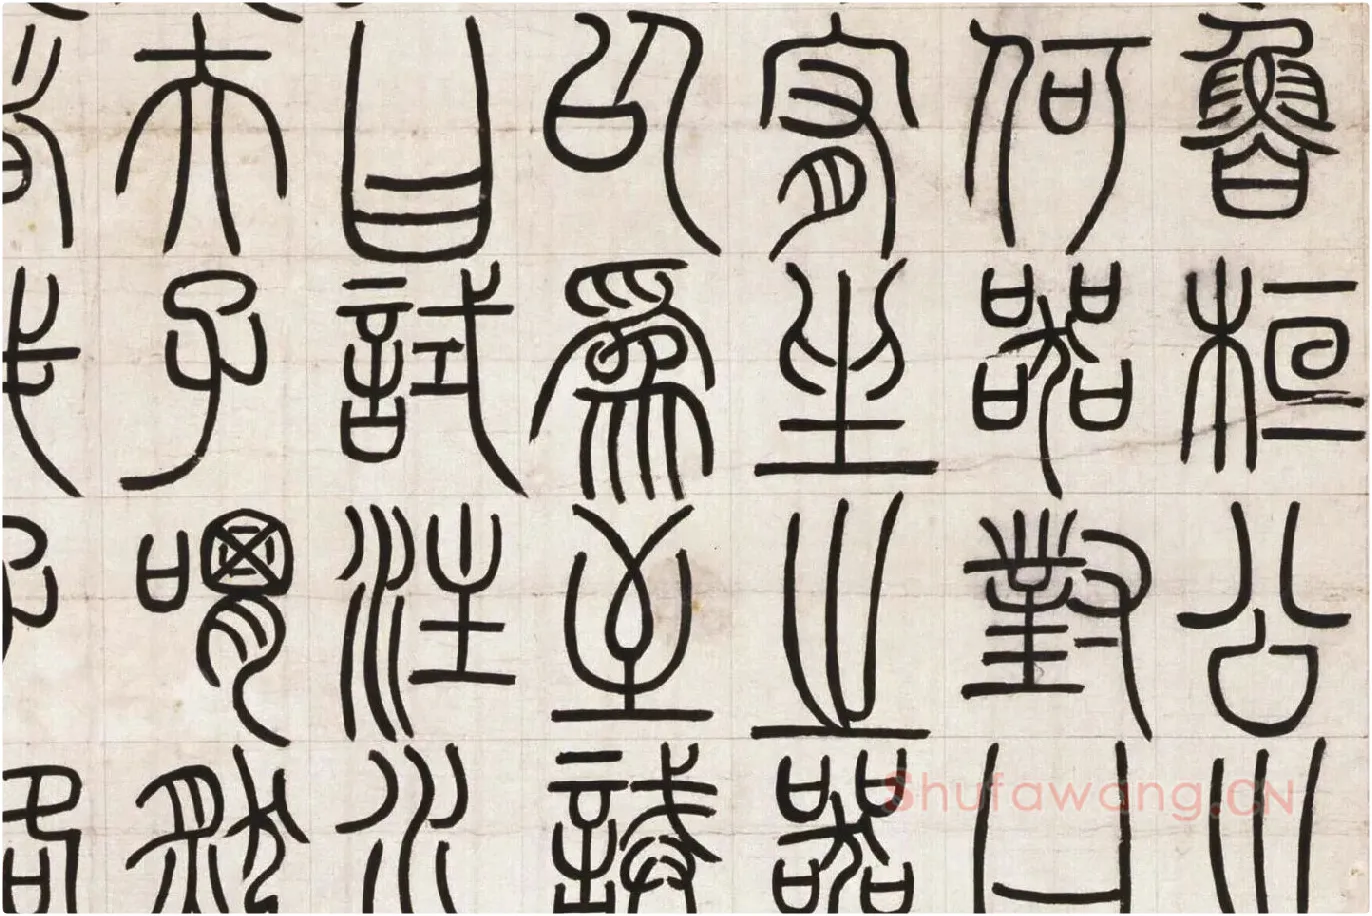 魯桓公之
何器對曰
宥坐之器
以為至誡
曰試注水
夫子喟然
Shufawang.CN